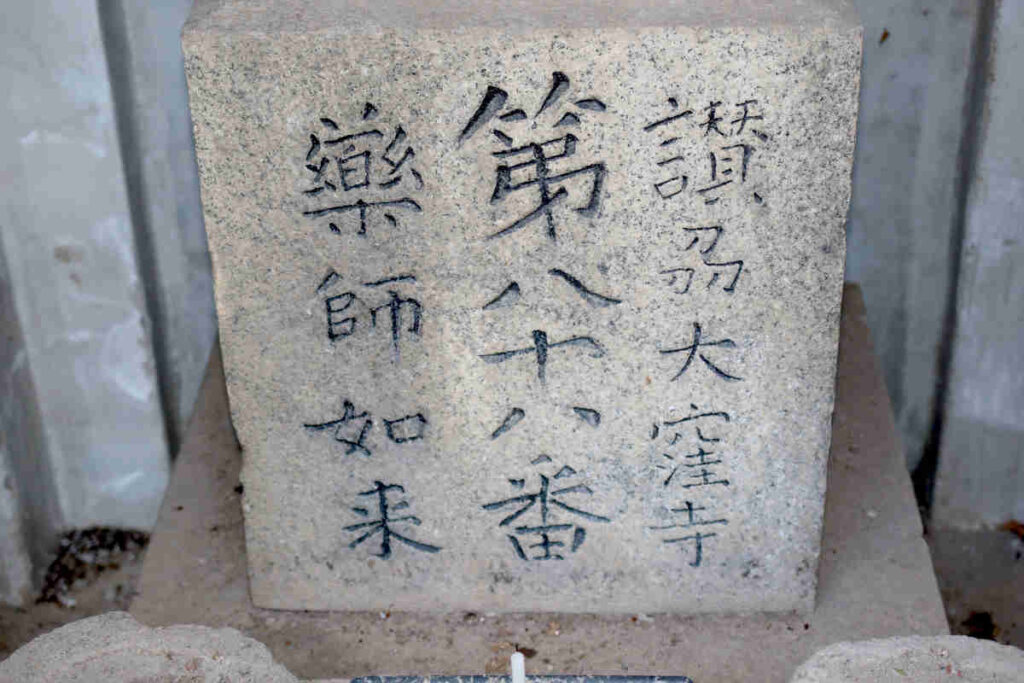 讃刕大窪寺
第八十八番
藥師如来